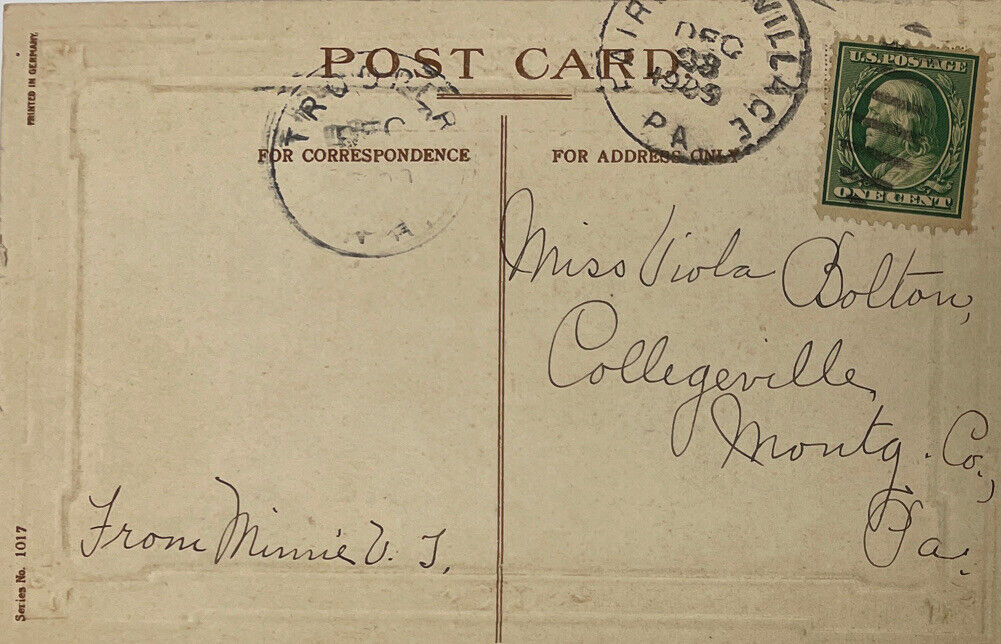 PRINTED IN GERMANY.
POST CARD
VILLAGE
DEC
PA
U.S. POSTAGE
ONE CENT
FOR CORRESPONDENCE
FOR ADDRESS ONLY
Miss Viola Bolton,
Collegeville,
Montg. Co.,
Pa.
From Minnie V. T.
Series No. 1017